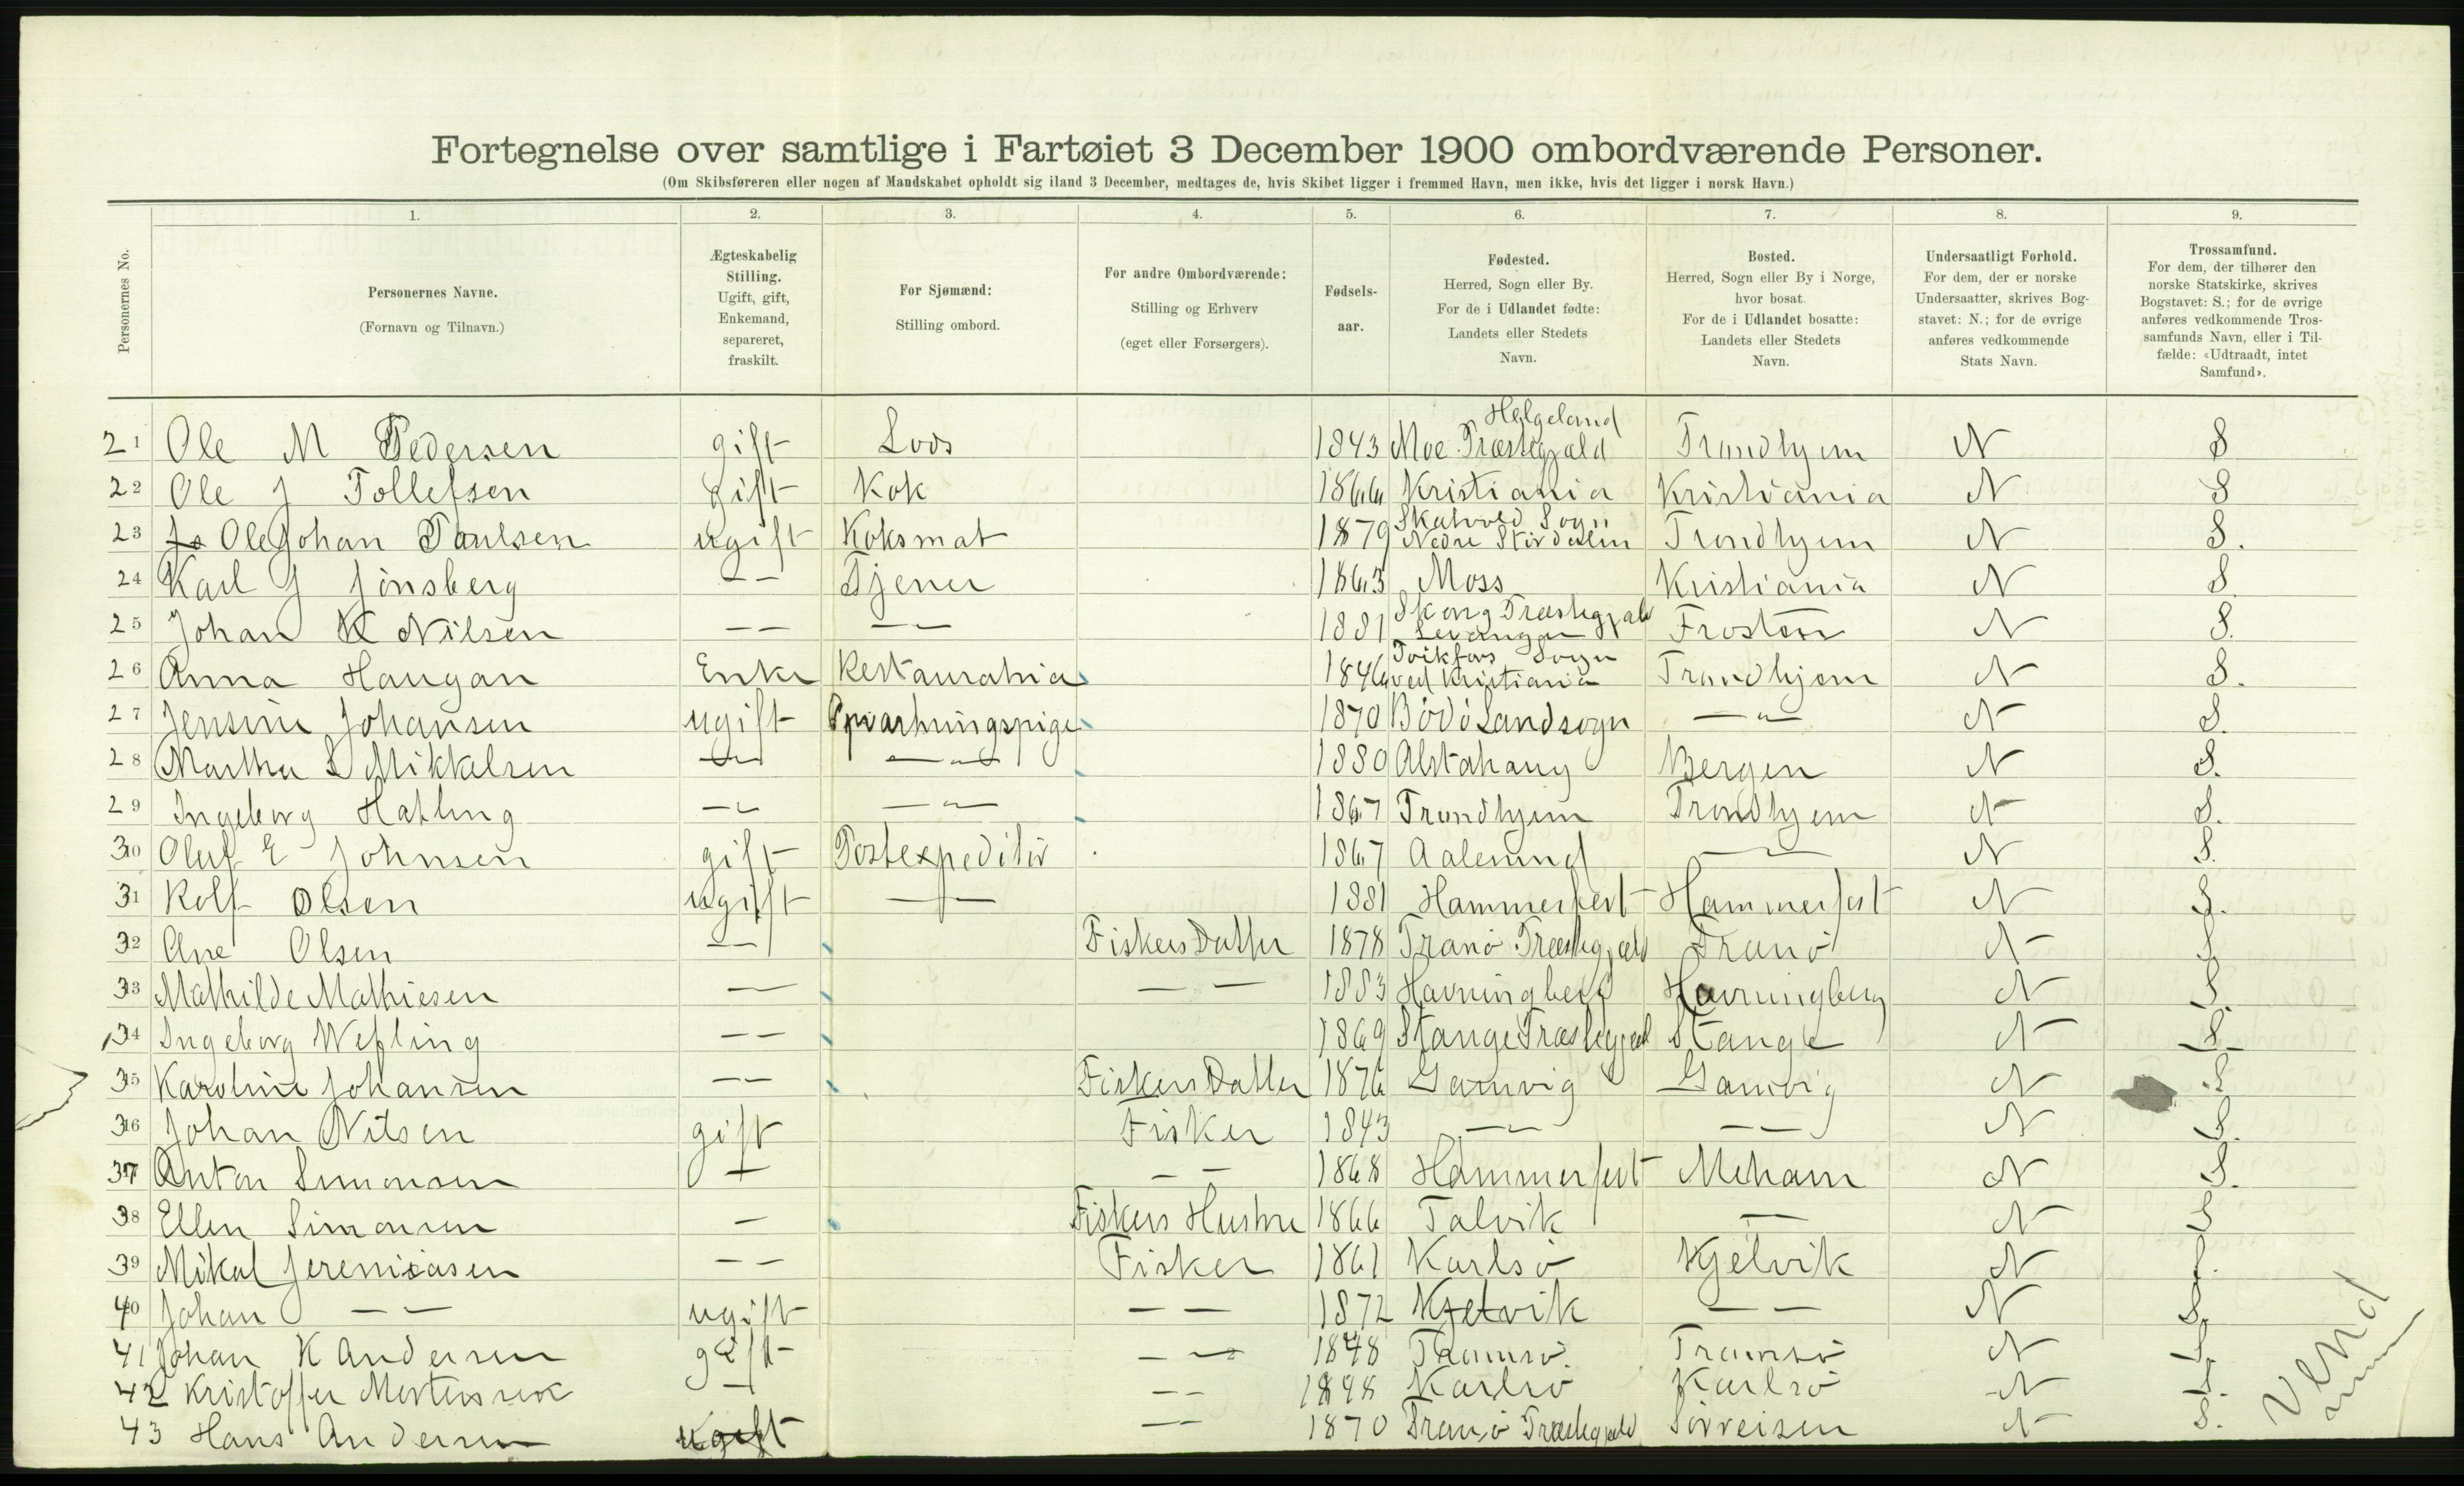 Fortegnelse over samtlige i Fartøiet 3 December 1900 ombordværende Personer.
(Om Skibsføreren eller nogen af Mandskabet opholdt sig iland 3 December, medtages de, hvis Skibet ligger i fremmed Havn, men ikke, hvis det ligger i norsk Havn.)
Personernes No.
1.
Personernes Navne.
(Fornavn og Tilnavn.)
2.
Ægteskabelig
Stilling.
Ugift, gift,
Enkemand,
separeret,
fraskilt.
3.
For Sjømænd:
Stilling ombord.
4.
For andre Ombordværende:
Stilling og Erhverv
(eget eller Forsørgers).
5.
Fødsels-
aar.
6.
Fødested.
Herred, Sogn eller By.
For de i Udlandet fødte:
Landets eller Stedets
Navn.
7.
Bosted.
Herred, Sogn eller By i Norge,
hvor bosat.
For de i Udlandet bosatte:
Landets eller Stedets
Navn.
8.
Undersaatligt Forhold.
For dem, der er norske
Undersaatter, skrives Bog-
stavet: N.; for de øvrige
anføres vedkommende
Stats Navn.
9.
Trossamfund.
For dem, der tilhører den
norske Statskirke, skrives
Bogstavet: S.; for de øvrige
anføres vedkommende Tros-
samfunds Navn, eller i Til-
fælde: «Udtraadt, intet
Samfund».
Helgeland
21 Ole M Pedersen gift Lods 1843 Moe Præstegjæld Trondhjem N S
22 Ole J Tollefsen Gift Kok 1866 Kristiania Kristiania N S
23 Ole Johan Paulsen ugift Koksmat 1879 Skatvold Sogn Nedre Stjördalen Trondhjem N S.
24 Karl J Jönsberg — — Tjener 1863 Moss Kristiania N S.
25 Johan K Nilsen — — — — 1881 Skong Præstegjæld Levanger Frosten N S.
26 Anna Haugan Enke Restauratrice 1846 Sogn ved Kristiania Trondhjem N S.
27 Jensine Johansen ugift Opvartningspige 1870 Bodö Landsogn — " — N S.
28 Martha S Mikkelsen — " — — " — 1880 Alstahaug Bergen N S.
29 Ingeborg Hafling — " — — " — 1867 Trondhjem Trondhjem N S.
30 Oluf E Johnsen gift Postexpeditör 1867 Aalesund — " — N S.
31 Rolf Olsen ugift — " — 1881 Hammerfest Hammerfest N S.
32 Ane Olsen — — Fiskers Datter 1878 Tranö Præstegjæld Tranö N S
33 Mathilde Mathiesen — — — 1883 Havningberg Havningberg N S.
34 Ingeborg Wefling — — 1869 Stange Præstegjæld Stange N S
35 Karoline Johansen — — Fiskers Datter 1876 Gamvig Gamvig N S
36 Johan Nilsen gift Fisker 1843 — — — — N S.
37 Anton Simonsen — — — 1868 Hammerfest Meham N S.
38 Ellen Simonsen — Fiskers Hustru 1866 Talvik — N S
39 Mikal Jeremiasen — — Fisker 1861 Karlsö Kjelvik N S.
40 Johan — — ugift — — 1872 Kjelvik — — N S.
41 Johan K Andersen gift — — 1848 Tromsö. Tromsö N S.
42 Kristoffer Mortensen — — — 1898 Karlsö Karlsö N S.
43 Hans Andersen ugift — — 1870 Tranö Præstegjæld Sörreisen N S.
Vend